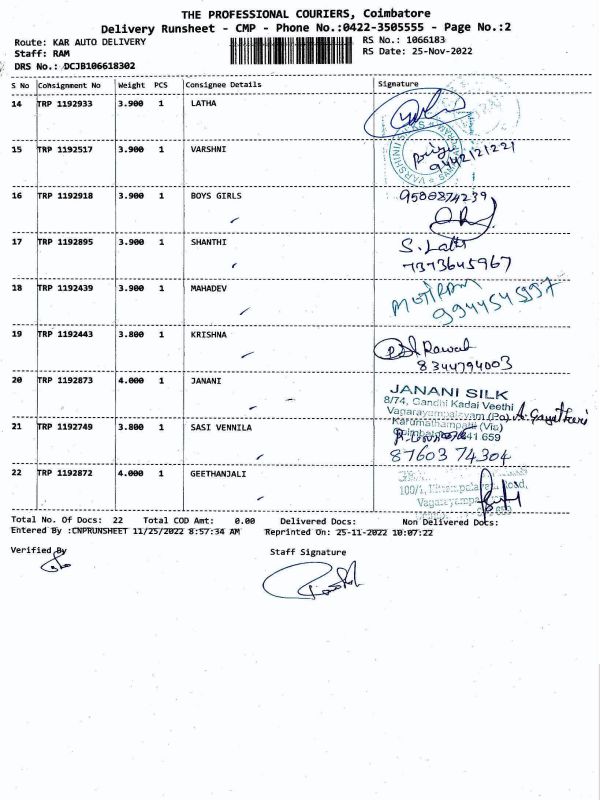 THE PROFESSIONAL COURIERS, Coimbatore
Delivery Runsheet - CMP - Phone No.:0422-3505555 - Page No.:2
Route: KAR AUTO DELIVERY
RS No.: 1066183
Staff: RAM
RS Date: 25-Nov-2022
DRS No.: DCJB106618302
S No Consignment No Weight PCS Consignee Details Signature
14 TRP 1192933 3.900 1 LATHA
VARSHINI SILKS
15 TRP 1192517 3.900 1 VARSHNI
9442121221
16 TRP 1192918 3.900 1 BOYS GIRLS 9500874239
17 TRP 1192895 3.900 1 SHANTHI S. Latti
7373645967
18 TRP 1192439 3.900 1 MAHADEV MOTIRAM
9944545997
19 TRP 1192443 3.800 1 KRISHNA Rawat
8344794003
20 TRP 1192873 4.000 1 JANANI
JANANI SILK
8/74, Gandhi Kadai Veethi
Vagarayampalayam (Po) A. Gayathri
Karumathampatti (Via)
641 659
21 TRP 1192749 3.800 1 SASI VENNILA
87603 74304
22 TRP 1192872 4.000 1 GEETHANJALI
Road,
Total No. Of Docs: 22 Total COD Amt: 0.00 Delivered Docs: Non Delivered Docs:
Entered By :CNPRUNSHEET 11/25/2022 8:57:34 AM Reprinted On: 25-11-2022 10:07:22
Verified By Staff Signature